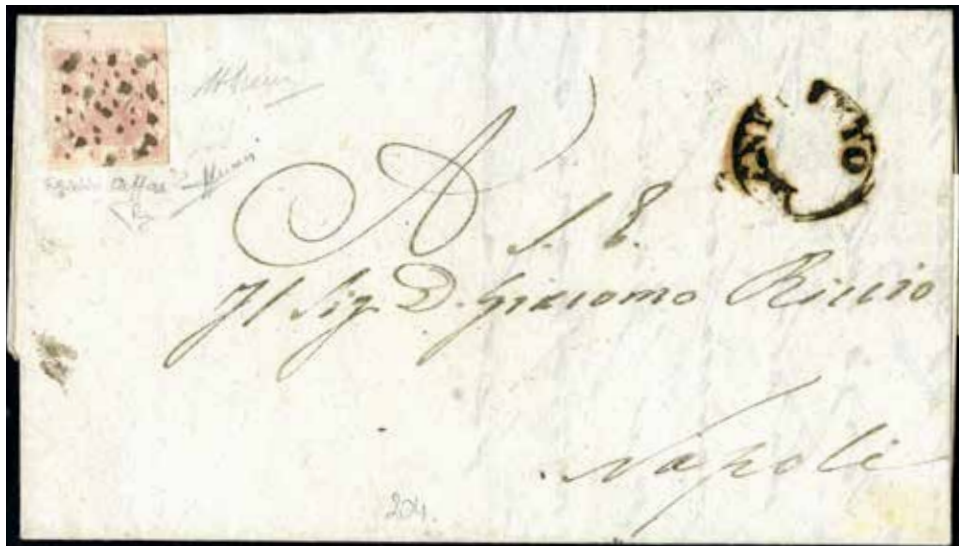 A S. E.
Il Sig. D. Giacomo Riccio
Napoli
204.